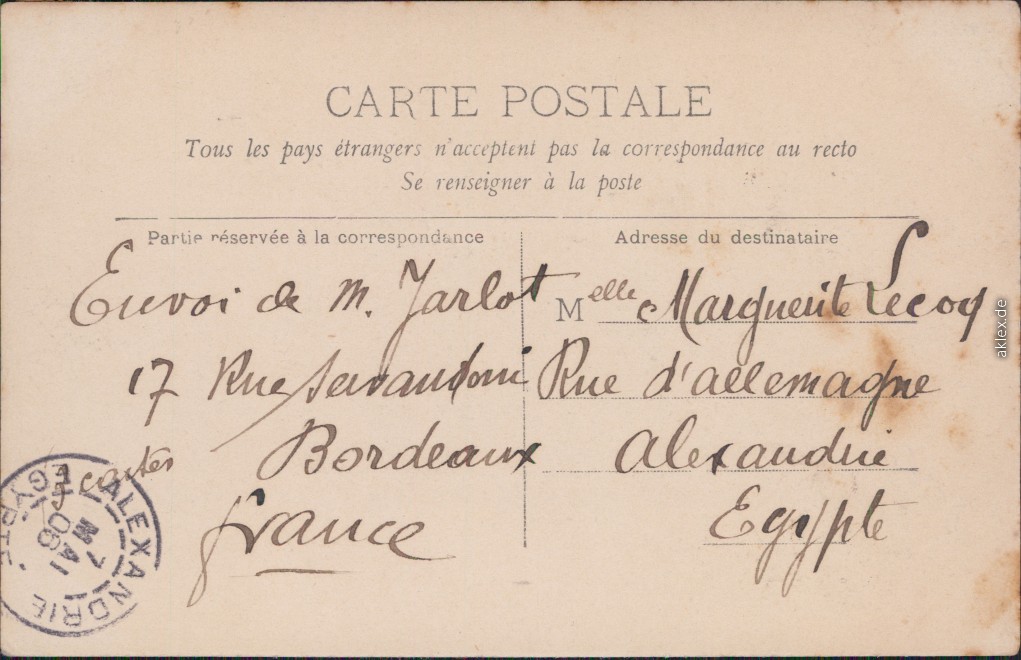 CARTE POSTALE
Tous les pays étrangers n'acceptent pas la correspondance au recto
Se renseigner à la poste
Partie réservée à la correspondance
Envoi de M. Jarlot
17 Rue Servandoni
Bordeaux
france
cartes
Adresse du destinataire
Melle Marguerite Lecoq
Rue d'allemagne
Alexandrie
Egypte
ALEXANDRIE
7 MAI 06
EGYPTE
aklex.de